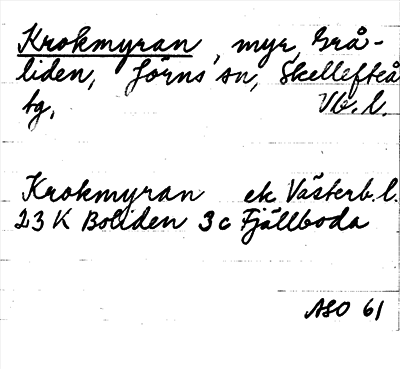 Krokmyran, myr, Grå-
liden, Jörns sn, Skellefteå
tg, Vb. l.
Krokmyran ek. Västerb. l.
23 K Boliden 3 c Fjällboda
ASO 61